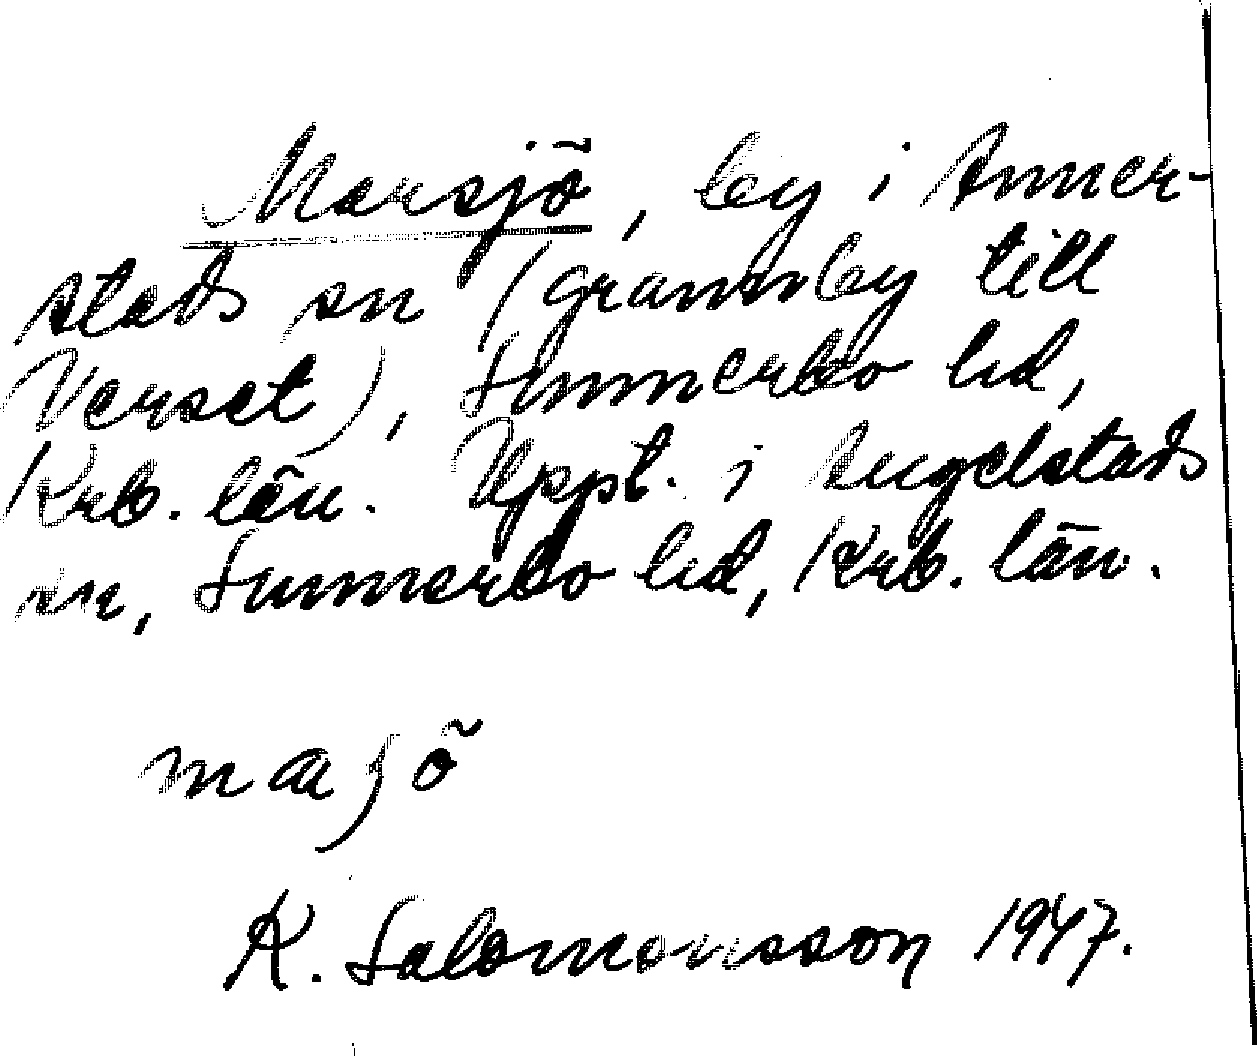 Marsjö, by i Anner-
stads sn (grannby till
Verset), Sunnerbo hd,
Krb. län. Uppt. i Angelstads
sn, Sunnerbo hd, Krb. län.
K. Salomonsson 1947.